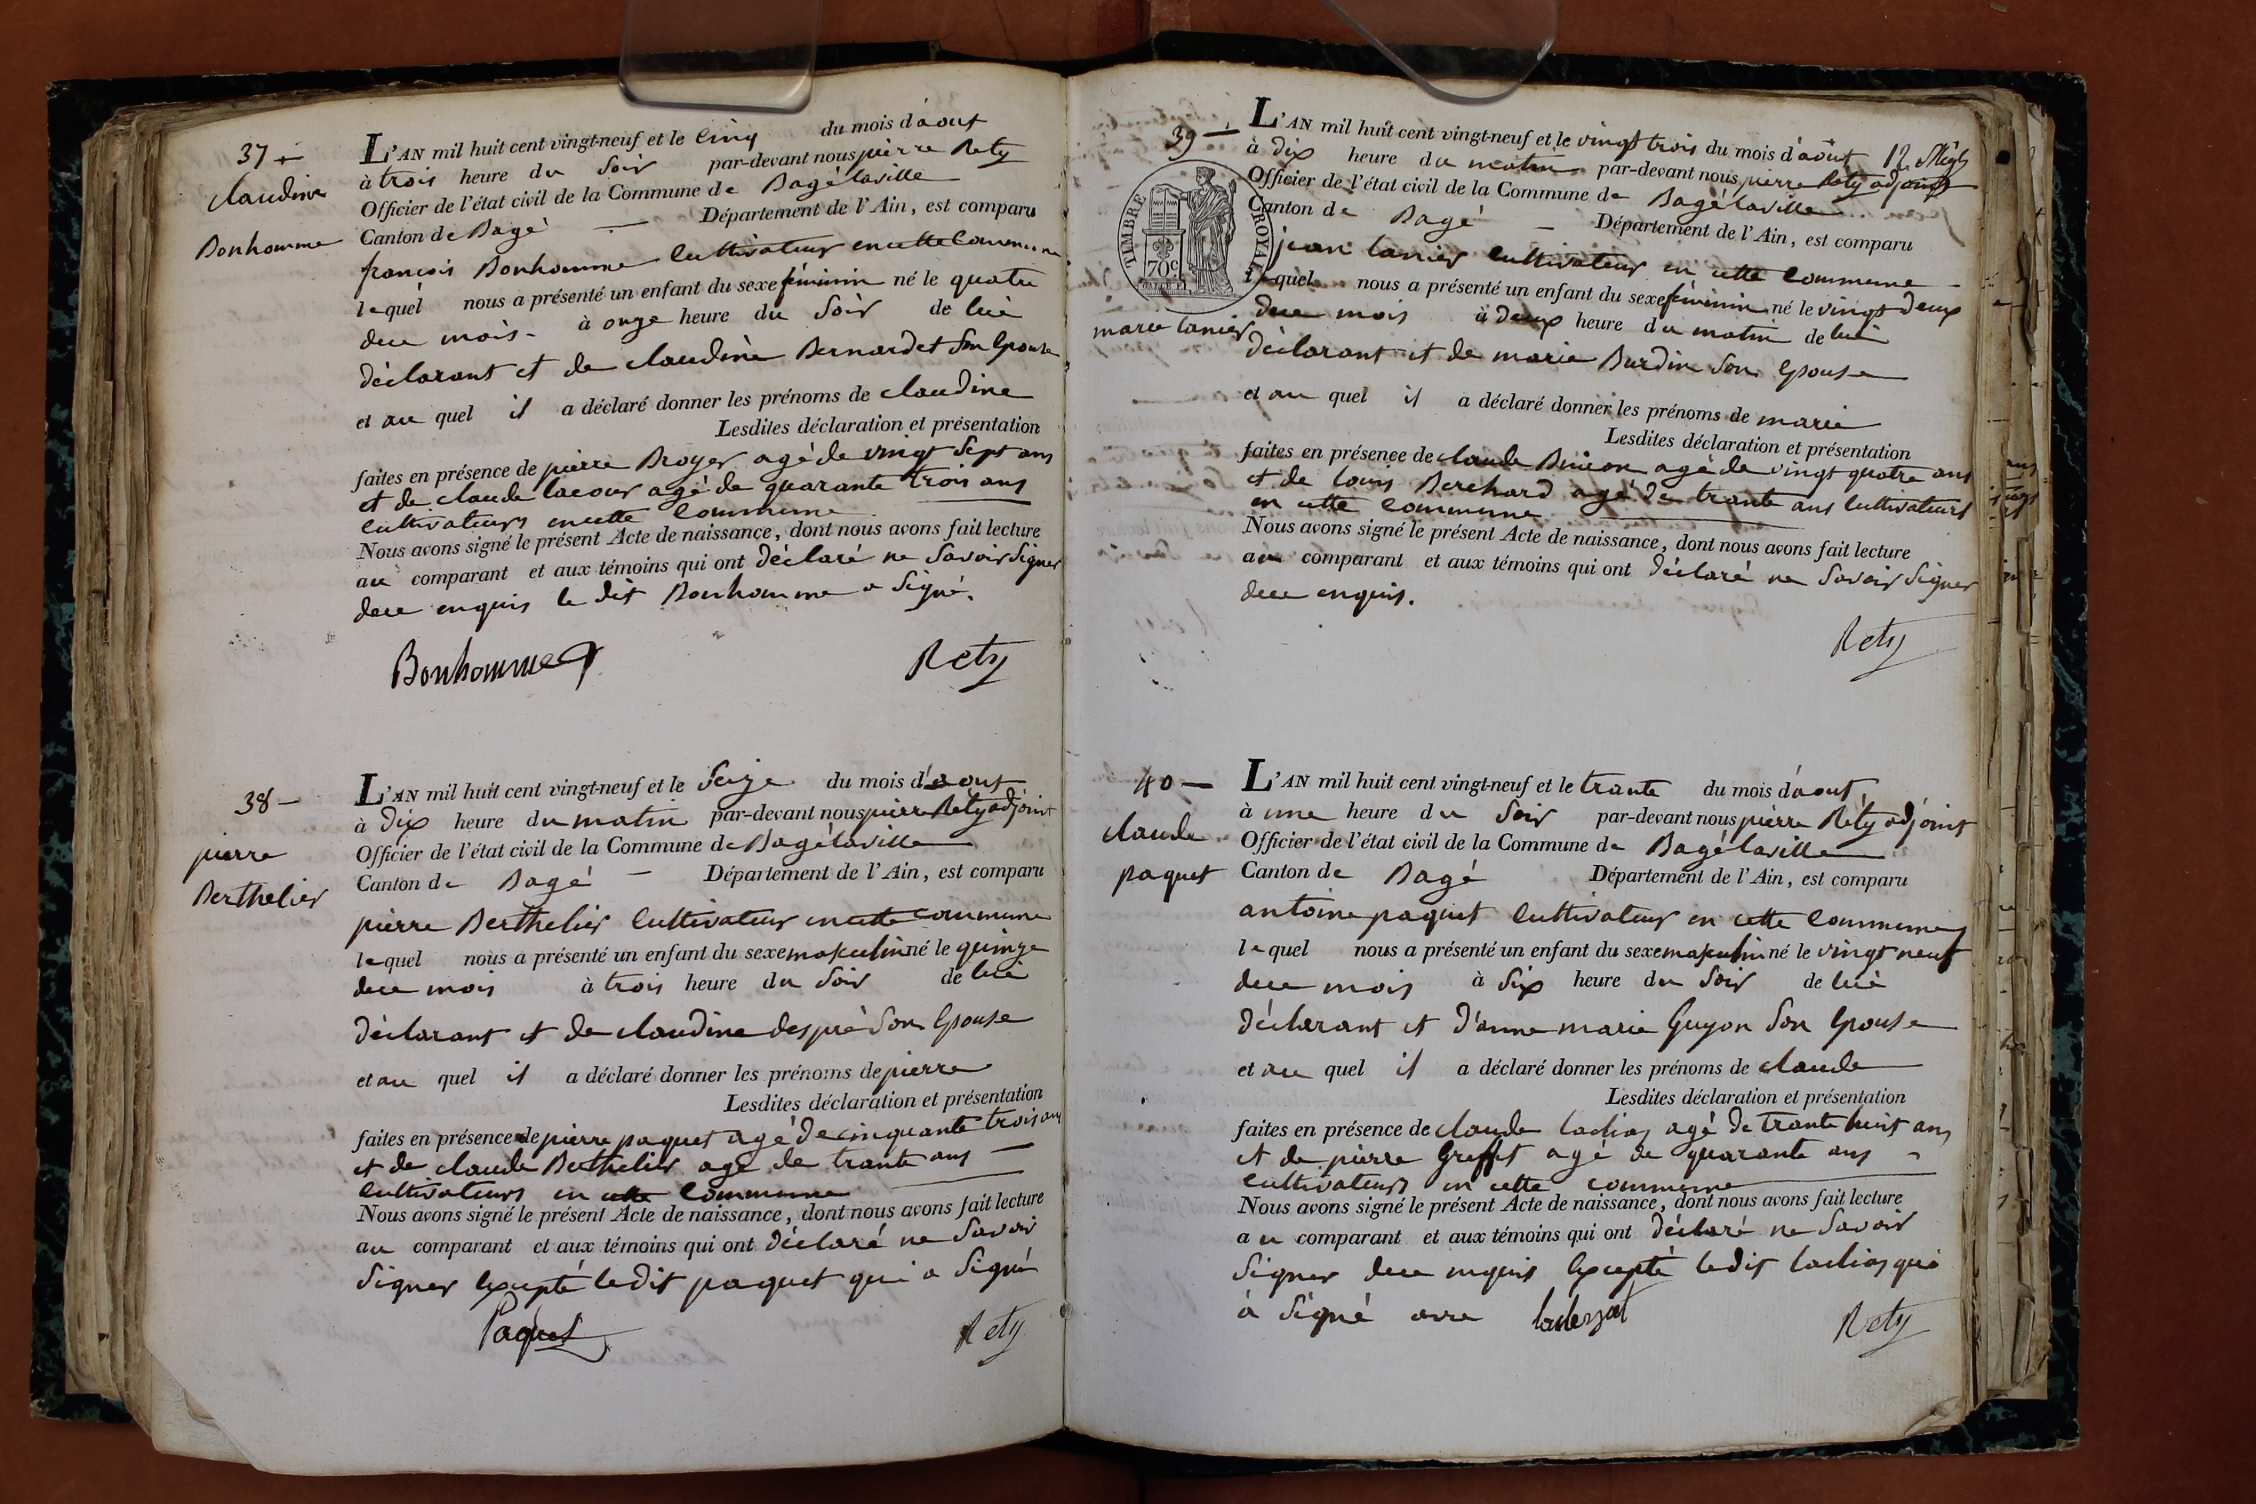 37 +
claudine
Bonhomme
L'AN mil huit cent vingt-neuf et le cinq du mois d'aout
à trois heure du soir par-devant nous pierre Rety
Officier de l'état civil de la Commune de Bagélaville
Canton de Bagé — Département de l'Ain, est comparu
françois Bonhomme cultivateur en cette commune
lequel nous a présenté un enfant du sexe féminin né le quatre
duu mois - à onze heure du soir de lui
déclarant et de claudine Bernardet son épouse
et au quel il a déclaré donner les prénoms de claudine
Lesdites déclaration et présentation
faites en présence de pierre Broyer agé de vingt sept ans
et de claude lacour agé de quarante trois ans
cultivateurs en cette commune
Nous avons signé le présent Acte de naissance, dont nous avons fait lecture
au comparant et aux témoins qui ont déclaré ne savoir signer
dece enquis le dit Bonhomme a signé.
Bonhomme
Rety
38 —
pierre
Berthelier
L'AN mil huit cent vingt-neuf et le seize du mois d'aout
à dix heure du matin par-devant nous pierre Rety adjoint
Officier de l'état civil de la Commune de Bagélaville
Canton de Bagé — Département de l'Ain, est comparu
pierre Berthelier cultivateur en cette commune
lequel nous a présenté un enfant du sexe masculin né le quinze
duu mois à trois heure du soir de lui
déclarant et de claudine despré son épouse
et au quel il a déclaré donner les prénoms de pierre
Lesdites déclaration et présentation
faites en présence de pierre paquet agé de cinquante trois ans
et de claude Berthelier agé de trante ans —
cultivateurs en cette commune
Nous avons signé le présent Acte de naissance, dont nous avons fait lecture
au comparant et aux témoins qui ont déclaré ne savoir
signer excepté ledit paquet qui a signé
Paquet
Rety
39 —
TIMBRE ROYAL
70c
marie lanier
L'AN mil huit cent vingt-neuf et le vingt trois du mois d'août
à dix heure du matin par-devant nous pierre Rety adjoint
Officier de l'état civil de la Commune de Bagélaville
Canton de Bagé — Département de l'Ain, est comparu
jean lanier cultivateur en cette commune
lequel nous a présenté un enfant du sexe féminin né le vingt deux
duu mois à deux heure du matin de lui
déclarant et de marie Burdin son épouse
et au quel il a déclaré donner les prénoms de marie
Lesdites déclaration et présentation
faites en présence de claude agé de vingt quatre ans
et de louis Berchard agé de trante ans cultivateurs
en cette commune
Nous avons signé le présent Acte de naissance, dont nous avons fait lecture
au comparant et aux témoins qui ont déclaré ne savoir signer
dece enquis.
Rety
40 —
claude
paquet
L'AN mil huit cent vingt-neuf et le trante du mois d'aout
à une heure du soir par-devant nous pierre Rety adjoint
Officier de l'état civil de la Commune de Bagélaville
Canton de Bagé Département de l'Ain, est comparu
antoine paquet cultivateur en cette commune
lequel nous a présenté un enfant du sexe masculin né le vingt neuf
duu mois à six heure du soir de lui
déclarant et d'anne marie Guyon son épouse
et au quel il a déclaré donner les prénoms de claude
Lesdites déclaration et présentation
faites en présence de claude agé de trante huit ans
et de pierre Greffet agé de quarante ans -
cultivateurs en cette commune
Nous avons signé le présent Acte de naissance, dont nous avons fait lecture
au comparant et aux témoins qui ont déclaré ne savoir
signer dece enquis excepté ledit qui
à signé avec
Rety